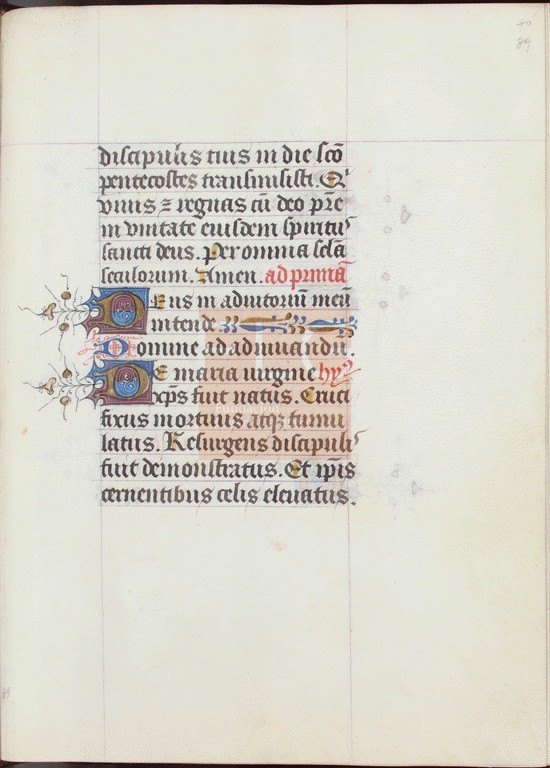 40
89
discipulis tuis in die sc̄o
pentecostes transmisisti. Q̄
viuis ⁊ regnas cū deo pr̄e
in vnitate eiusdem spiritus
sancti deus. Per omnia sclā
seculorum. Amen. ad primā
Deus in adiutoriū meū
intende
Domine ad adiuuandū.
De maria uirgine hyꝰ
xp̄s fuit natus. Cruci
fixus mortuus atqꝫ tumu
latus. Resurgens discipulis
fuit demonstratus. Et ip̄is
cernentibus celis eleuatus.